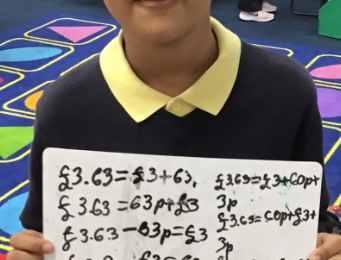 £3.63=£3+63,
£3.63=63p+£3
£3.63-63p=£3
£3.63=£3+60p+
3p
£3.63=60p+£3+
3p